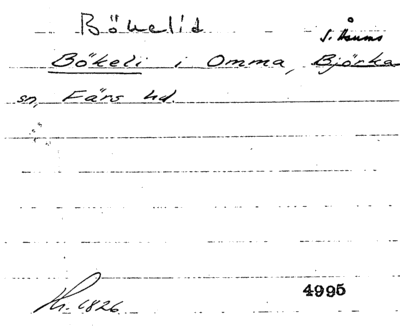 Bökelid
S. Åsums
Bökeli i Omma, Björka
sn, Färs hd.
1826
4995